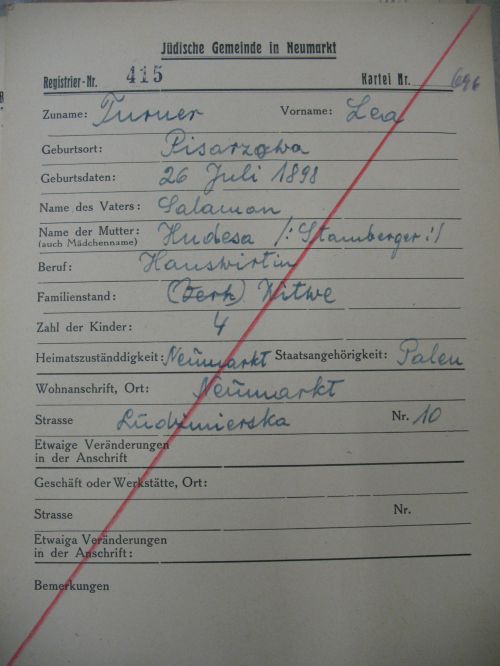 Jüdische Gemeinde in Neumarkt
Registrier-Nr. 415 Kartei Nr. 696
Zuname: Turner Vorname: Lea
Geburtsort: Pisarzowa
Geburtsdaten: 26 Juli 1898
Name des Vaters: Salamon
Name der Mutter: Hudesa /:Stamberger:/
(auch Mädchenname)
Beruf: Hauswirtin
Familienstand: (Verh) Witwe
Zahl der Kinder: 4
Heimatszuständdigkeit: Neumarkt Staatsangehörigkeit: Polen
Wohnanschrift, Ort: Neumarkt
Strasse Ludzimierska Nr. 10
Etwaige Veränderungen
in der Anschrift
Geschäft oder Werkstätte, Ort:
Strasse Nr.
Etwaiga Veränderungen
in der Anschrift:
Bemerkungen